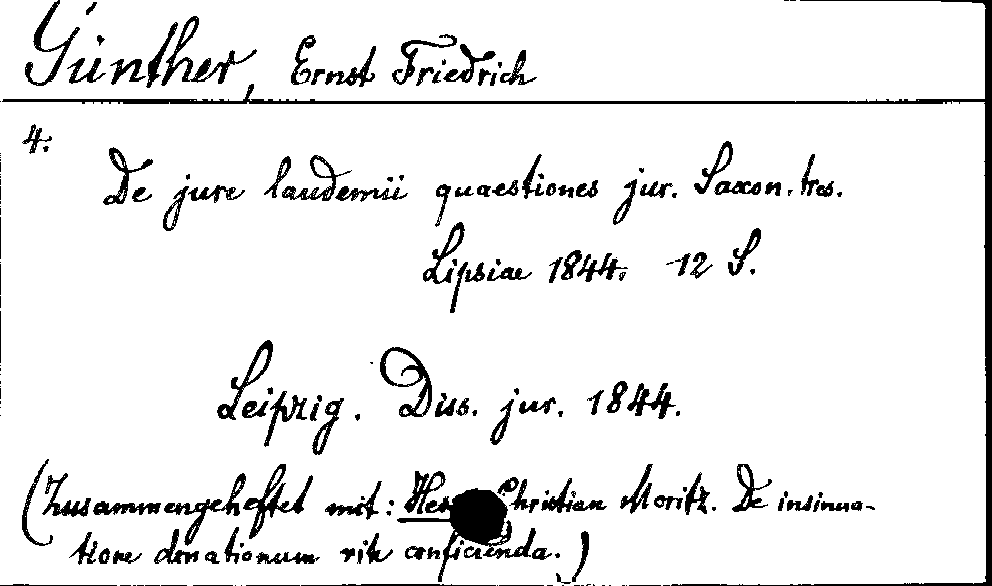 Günther, Ernst Friedrich
4.
De jure laudemii quaestiones jur. Saxon. tres.
Lipsiae 1844. 12 S.
Leipzig. Diss. jur. 1844.
(Zusammengeheftet mit: Christian Moritz. De insinua-
tione donationum rite conficienda.)